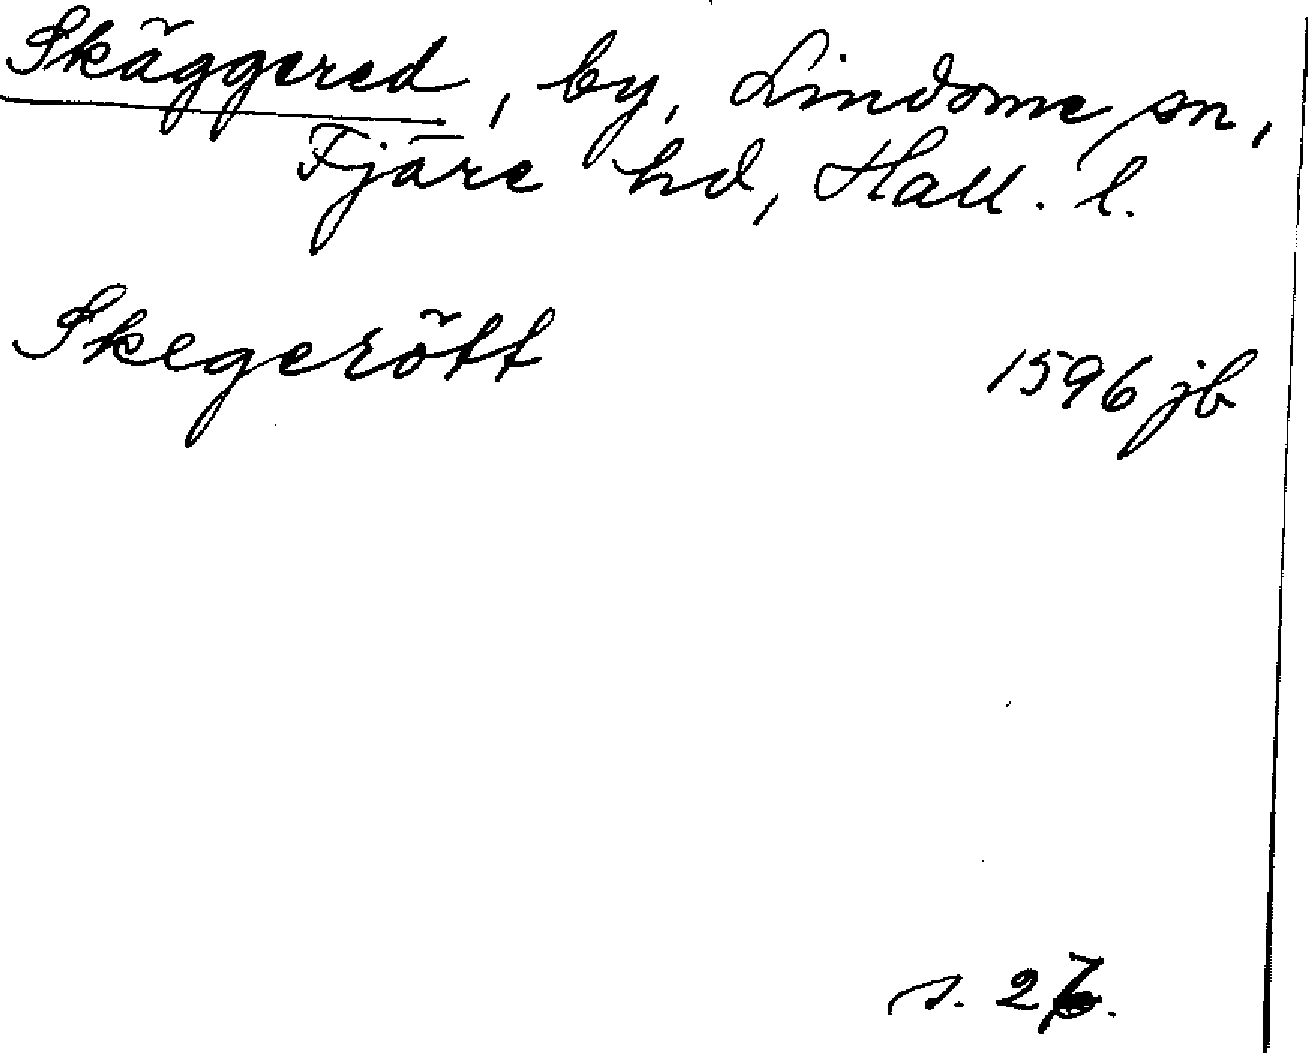 Skäggered, by, Lindome sn,
Fjäre hd, Hall. l.
Skegerött 1596 jb
s.